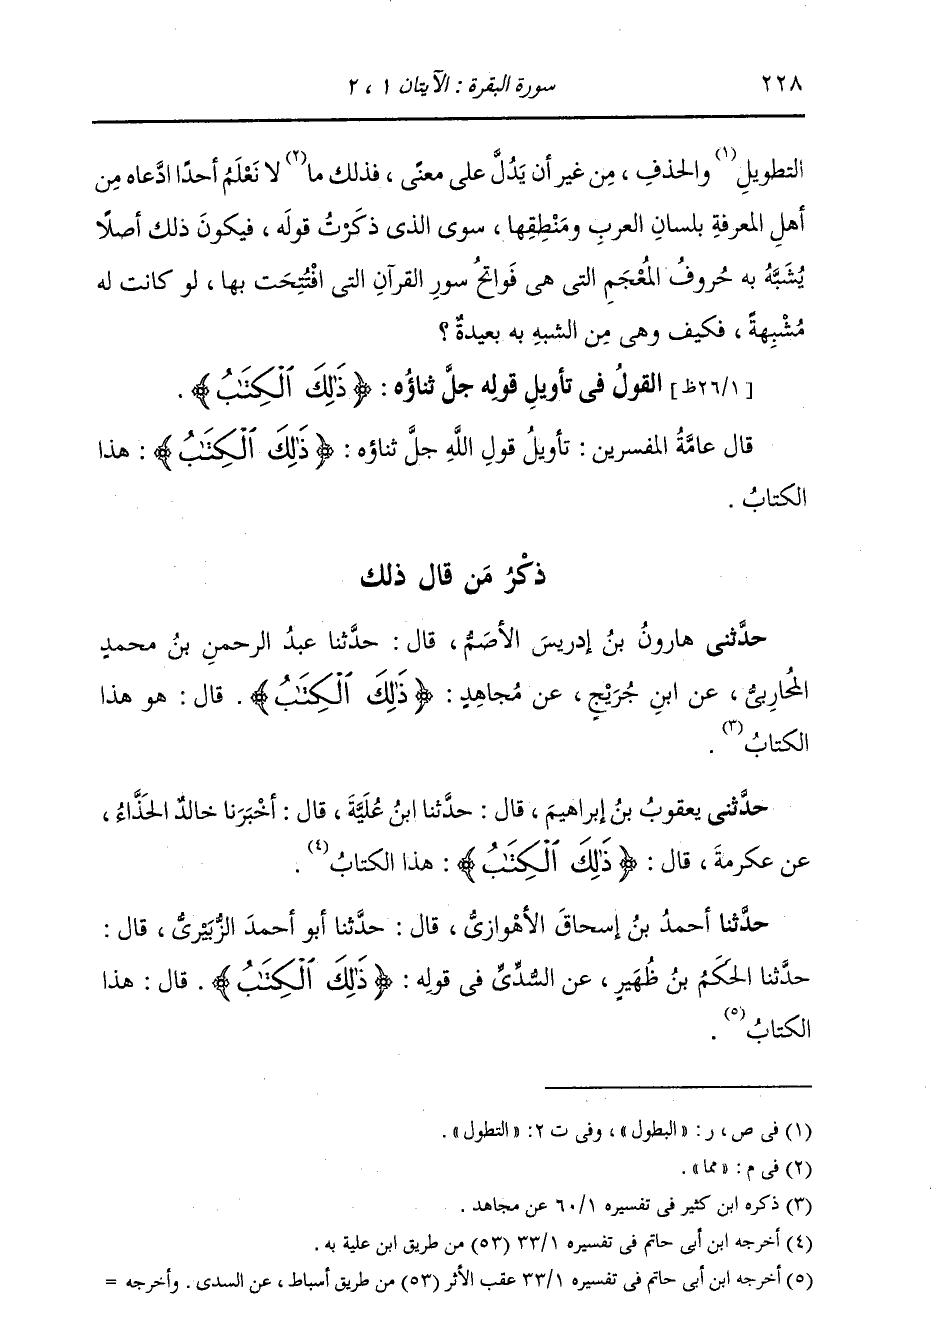 ٢٢٨ سورة البقرة : الآيتان ١ ، ٢
التطويلِ(١) والحذفِ ، مِن غيرِ أن يَدُلَّ على معنًى ، فذلك ما(٢) لا نَعْلَمُ أحدًا ادَّعاه مِن
أهلِ المعرفةِ بلسانِ العربِ ومَنْطِقِها ، سوى الذى ذكَرْتُ قولَه ، فيكونَ ذلك أصلًا
يُشَبَّهُ به حُروفُ المُعْجَمِ التى هى فَواتحُ سورِ القرآنِ التى افْتُتِحَت بها ، لو كانت له
مُشْبِهةً ، فكيف وهى مِن الشبهِ به بعيدةٌ ؟
[ ٢٦/١ظ] القولُ فى تأويلِ قولِه جلَّ ثناؤُه : ﴿ ذَٰلِكَ ٱلْكِتَٰبُ ﴾ .
قال عامَّةُ المفسرين : تأويلُ قولِ اللَّهِ جلَّ ثناؤه : ﴿ ذَٰلِكَ ٱلْكِتَٰبُ ﴾ : هذا
الكتابُ .
ذكْرُ مَن قال ذلك
حدَّثنى هارونُ بنُ إدريسَ الأصَمُّ ، قال : حدَّثنا عبدُ الرحمنِ بنُ محمدٍ
المُحاربىُّ ، عن ابنِ جُرَيْجٍ ، عن مُجاهِدٍ : ﴿ ذَٰلِكَ ٱلْكِتَٰبُ ﴾ . قال : هو هذا
الكتابُ(٣) .
حدَّثنى يعقوبُ بنُ إبراهيمَ ، قال : حدَّثنا ابنُ عُلَيَّةَ ، قال : أخْبَرَنا خالدٌ الحَذَّاءُ ،
عن عكرمةَ ، قال : ﴿ ذَٰلِكَ ٱلْكِتَٰبُ ﴾ : هذا الكتابُ(٤) .
حدَّثنا أحمدُ بنُ إسحاقَ الأهْوازىُّ ، قال : حدَّثنا أبو أحمدَ الزُّبَيْرىُّ ، قال :
حدَّثنا الحَكَمُ بنُ ظُهَيرٍ ، عن السُّدِّىِّ فى قولِه : ﴿ ذَٰلِكَ ٱلْكِتَٰبُ ﴾ . قال : هذا
الكتابُ(٥) .
(١) فى ص ، ر : « البطول » ، وفى ت ٢ : « التطول » .
(٢) فى م : « مما » .
(٣) ذكره ابن كثير فى تفسيره ٦٠/١ عن مجاهد .
(٤) أخرجه ابن أبى حاتم فى تفسيره ٣٣/١ (٥٣) من طريق ابن علية به .
(٥) أخرجه ابن أبى حاتم فى تفسيره ٣٣/١ عقب الأثر (٥٣) من طريق أسباط ، عن السدى . وأخرجه =